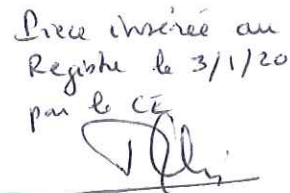 Pièce insérée au
Registre le 3/1/20
par le CE